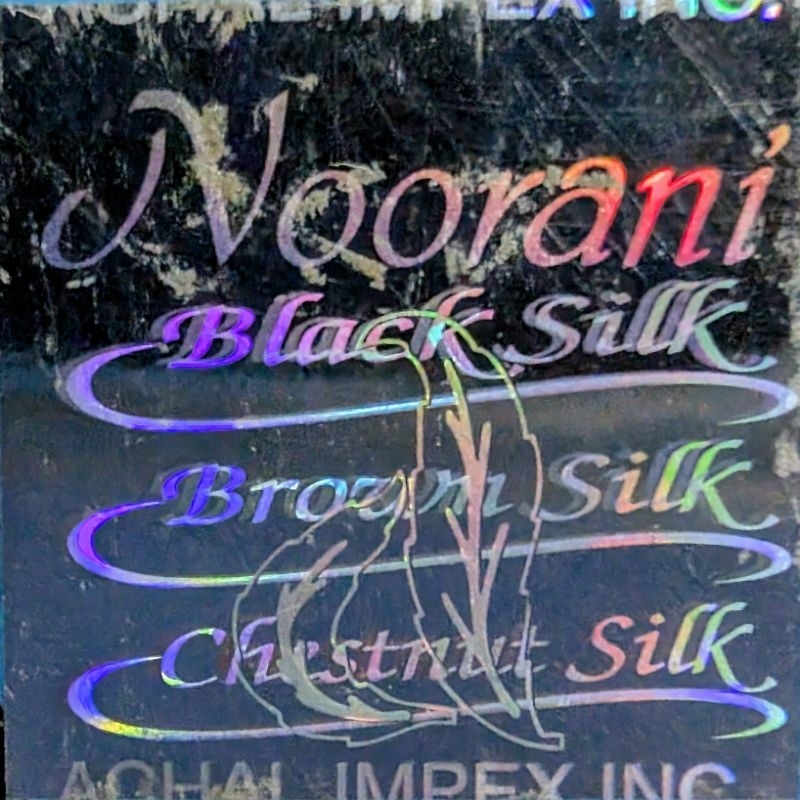 ACHAL IMPEX INC.
Noorani
Black Silk
Brown Silk
Chestnut Silk
ACHAL IMPEX INC